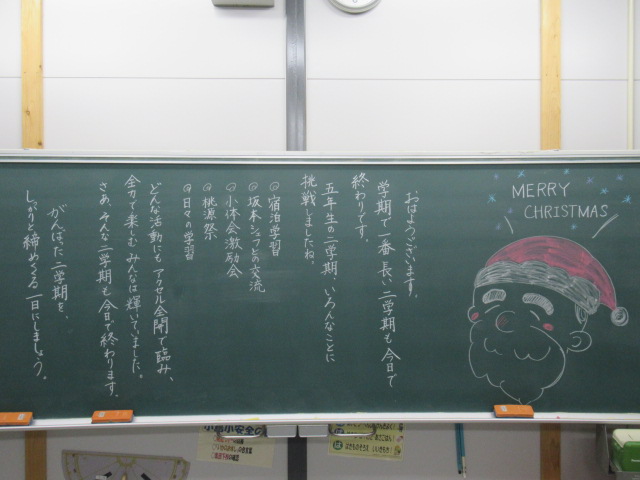 MERRY
CHRISTMAS
おはようございます。
学期で一番長い二学期も今日で
終わりです。
五年生の二学期、いろんなことに
挑戦しましたね。
宿泊学習
坂本シェフとの交流
小体会激励会
桃源祭
日々の学習
どんな活動にもアクセル全開で臨み、
全力で楽しむみんなは輝いていました。
さあ、そんな二学期も今日で終わります。
がんばった二学期を、
しっかりと締めくくる一日にしましょう。